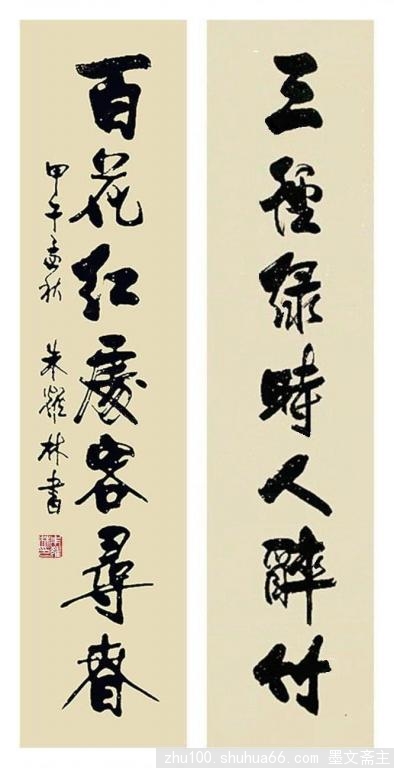 三徑绿時人醉竹
百花红處客尋春
甲午孟秋 朱耀林書
zhu100.shuhua66.com 墨文斋主